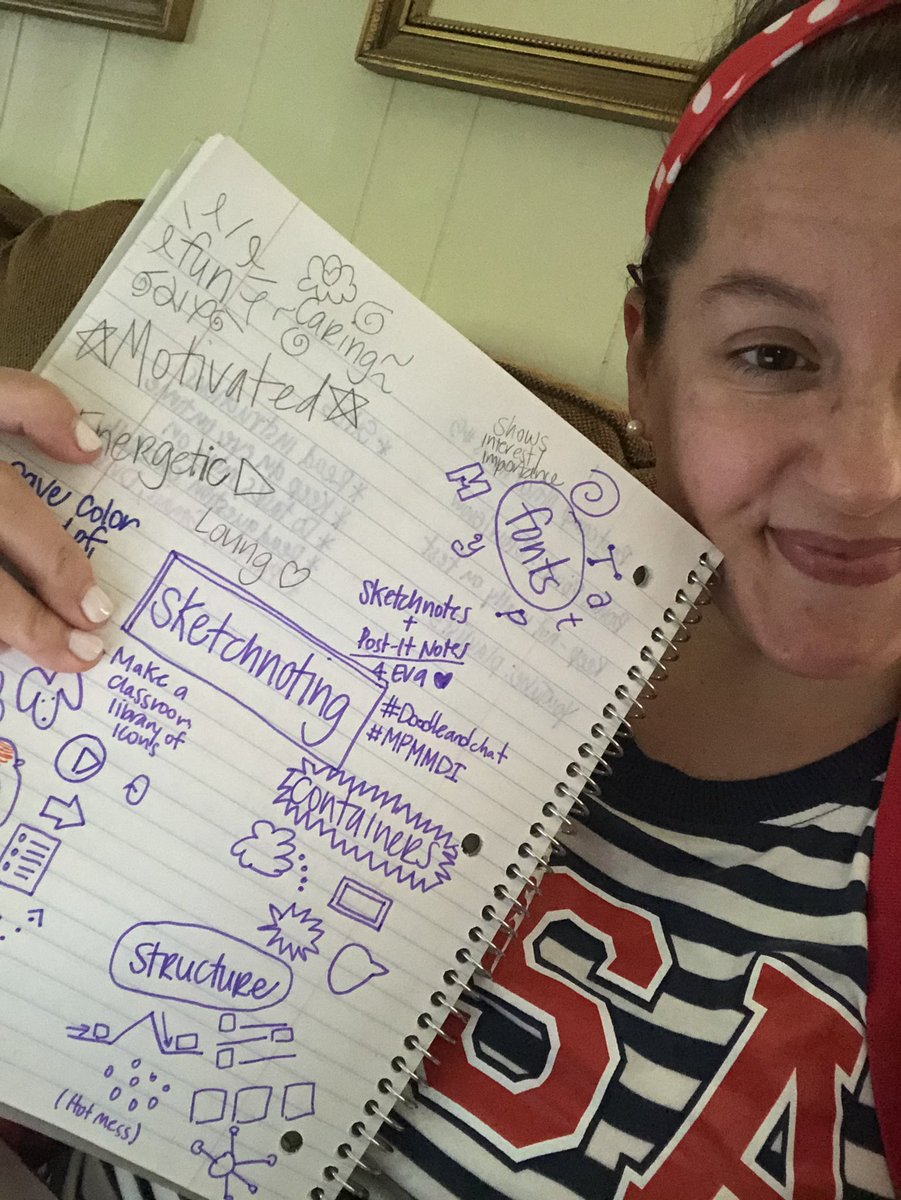 fun
~Caring~
Motivated
Energetic
Loving
Shows
interest/
importance
fonts
M y
T a t
color
Sketchnoting
Sketchnotes
+
Post-It Notes
4 Eva
#Doodleandchat
#MPMMDI
Make a
classroom
library of
icons
Containers
Structure
(Hot mess)
SA